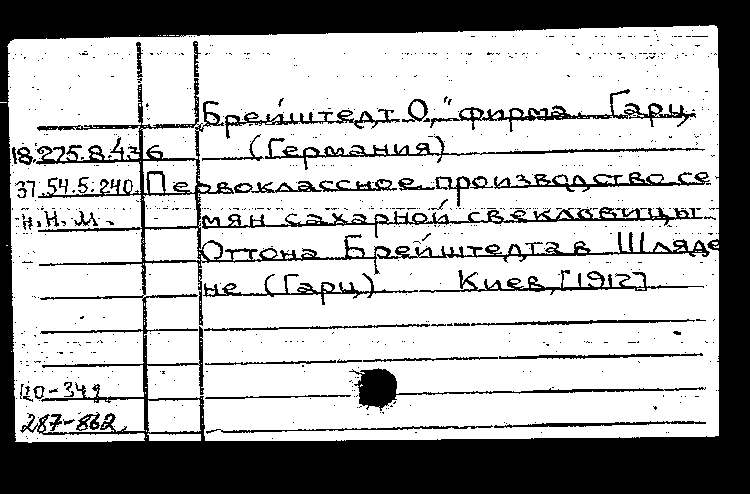 Брейштедт О., "фирма. Гарц.
18.275.8.436 (Германия)
37.54.5.240. Первоклассное производство се
н.н.м. мян сахарной свекловицы
Оттона Брейштедта в Шляде
не (Гарц) Киев, [1912]
20-349
287-862